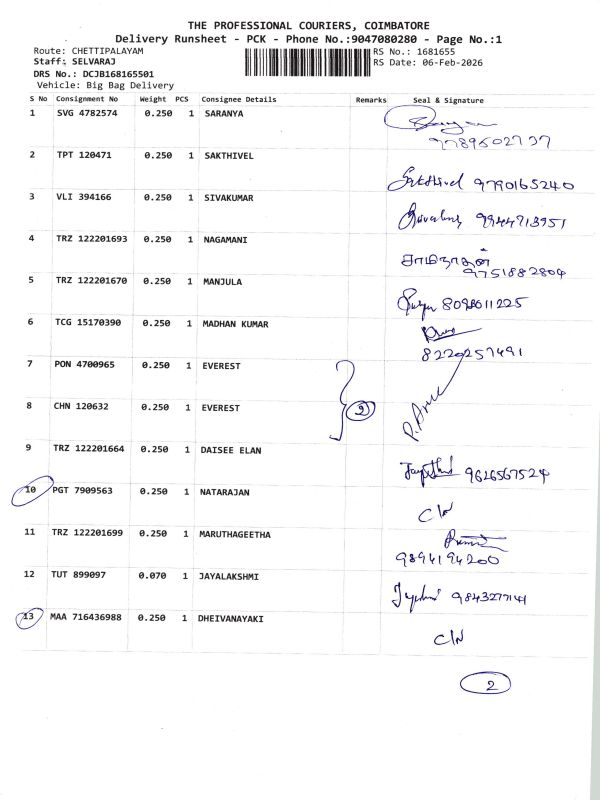 THE PROFESSIONAL COURIERS, COIMBATORE
Delivery Runsheet - PCK - Phone No.:9047080280 - Page No.:1
Route: CHETTIPALAYAM RS No.: 1681655
Staff: SELVARAJ RS Date: 06-Feb-2026
DRS No.: DCJB168165501
Vehicle: Big Bag Delivery
S No Consignment No Weight PCS Consignee Details Remarks Seal & Signature
1 SVG 4782574 0.250 1 SARANYA
9789502737
2 TPT 120471 0.250 1 SAKTHIVEL
Sakthivel 9790165240
3 VLI 394166 0.250 1 SIVAKUMAR
9944713951
4 TRZ 122201693 0.250 1 NAGAMANI
சாமிநாதன்
9751882804
5 TRZ 122201670 0.250 1 MANJULA
8098011225
6 TCG 15170390 0.250 1 MADHAN KUMAR
8220257491
7 PON 4700965 0.250 1 EVEREST
8 CHN 120632 0.250 1 EVEREST
2
9 TRZ 122201664 0.250 1 DAISEE ELAN
9626567524
10 PGT 7909563 0.250 1 NATARAJAN
C/N
11 TRZ 122201699 0.250 1 MARUTHAGEETHA
9894194200
12 TUT 899097 0.070 1 JAYALAKSHMI
9843277141
13 MAA 716436988 0.250 1 DHEIVANAYAKI
C/N
2